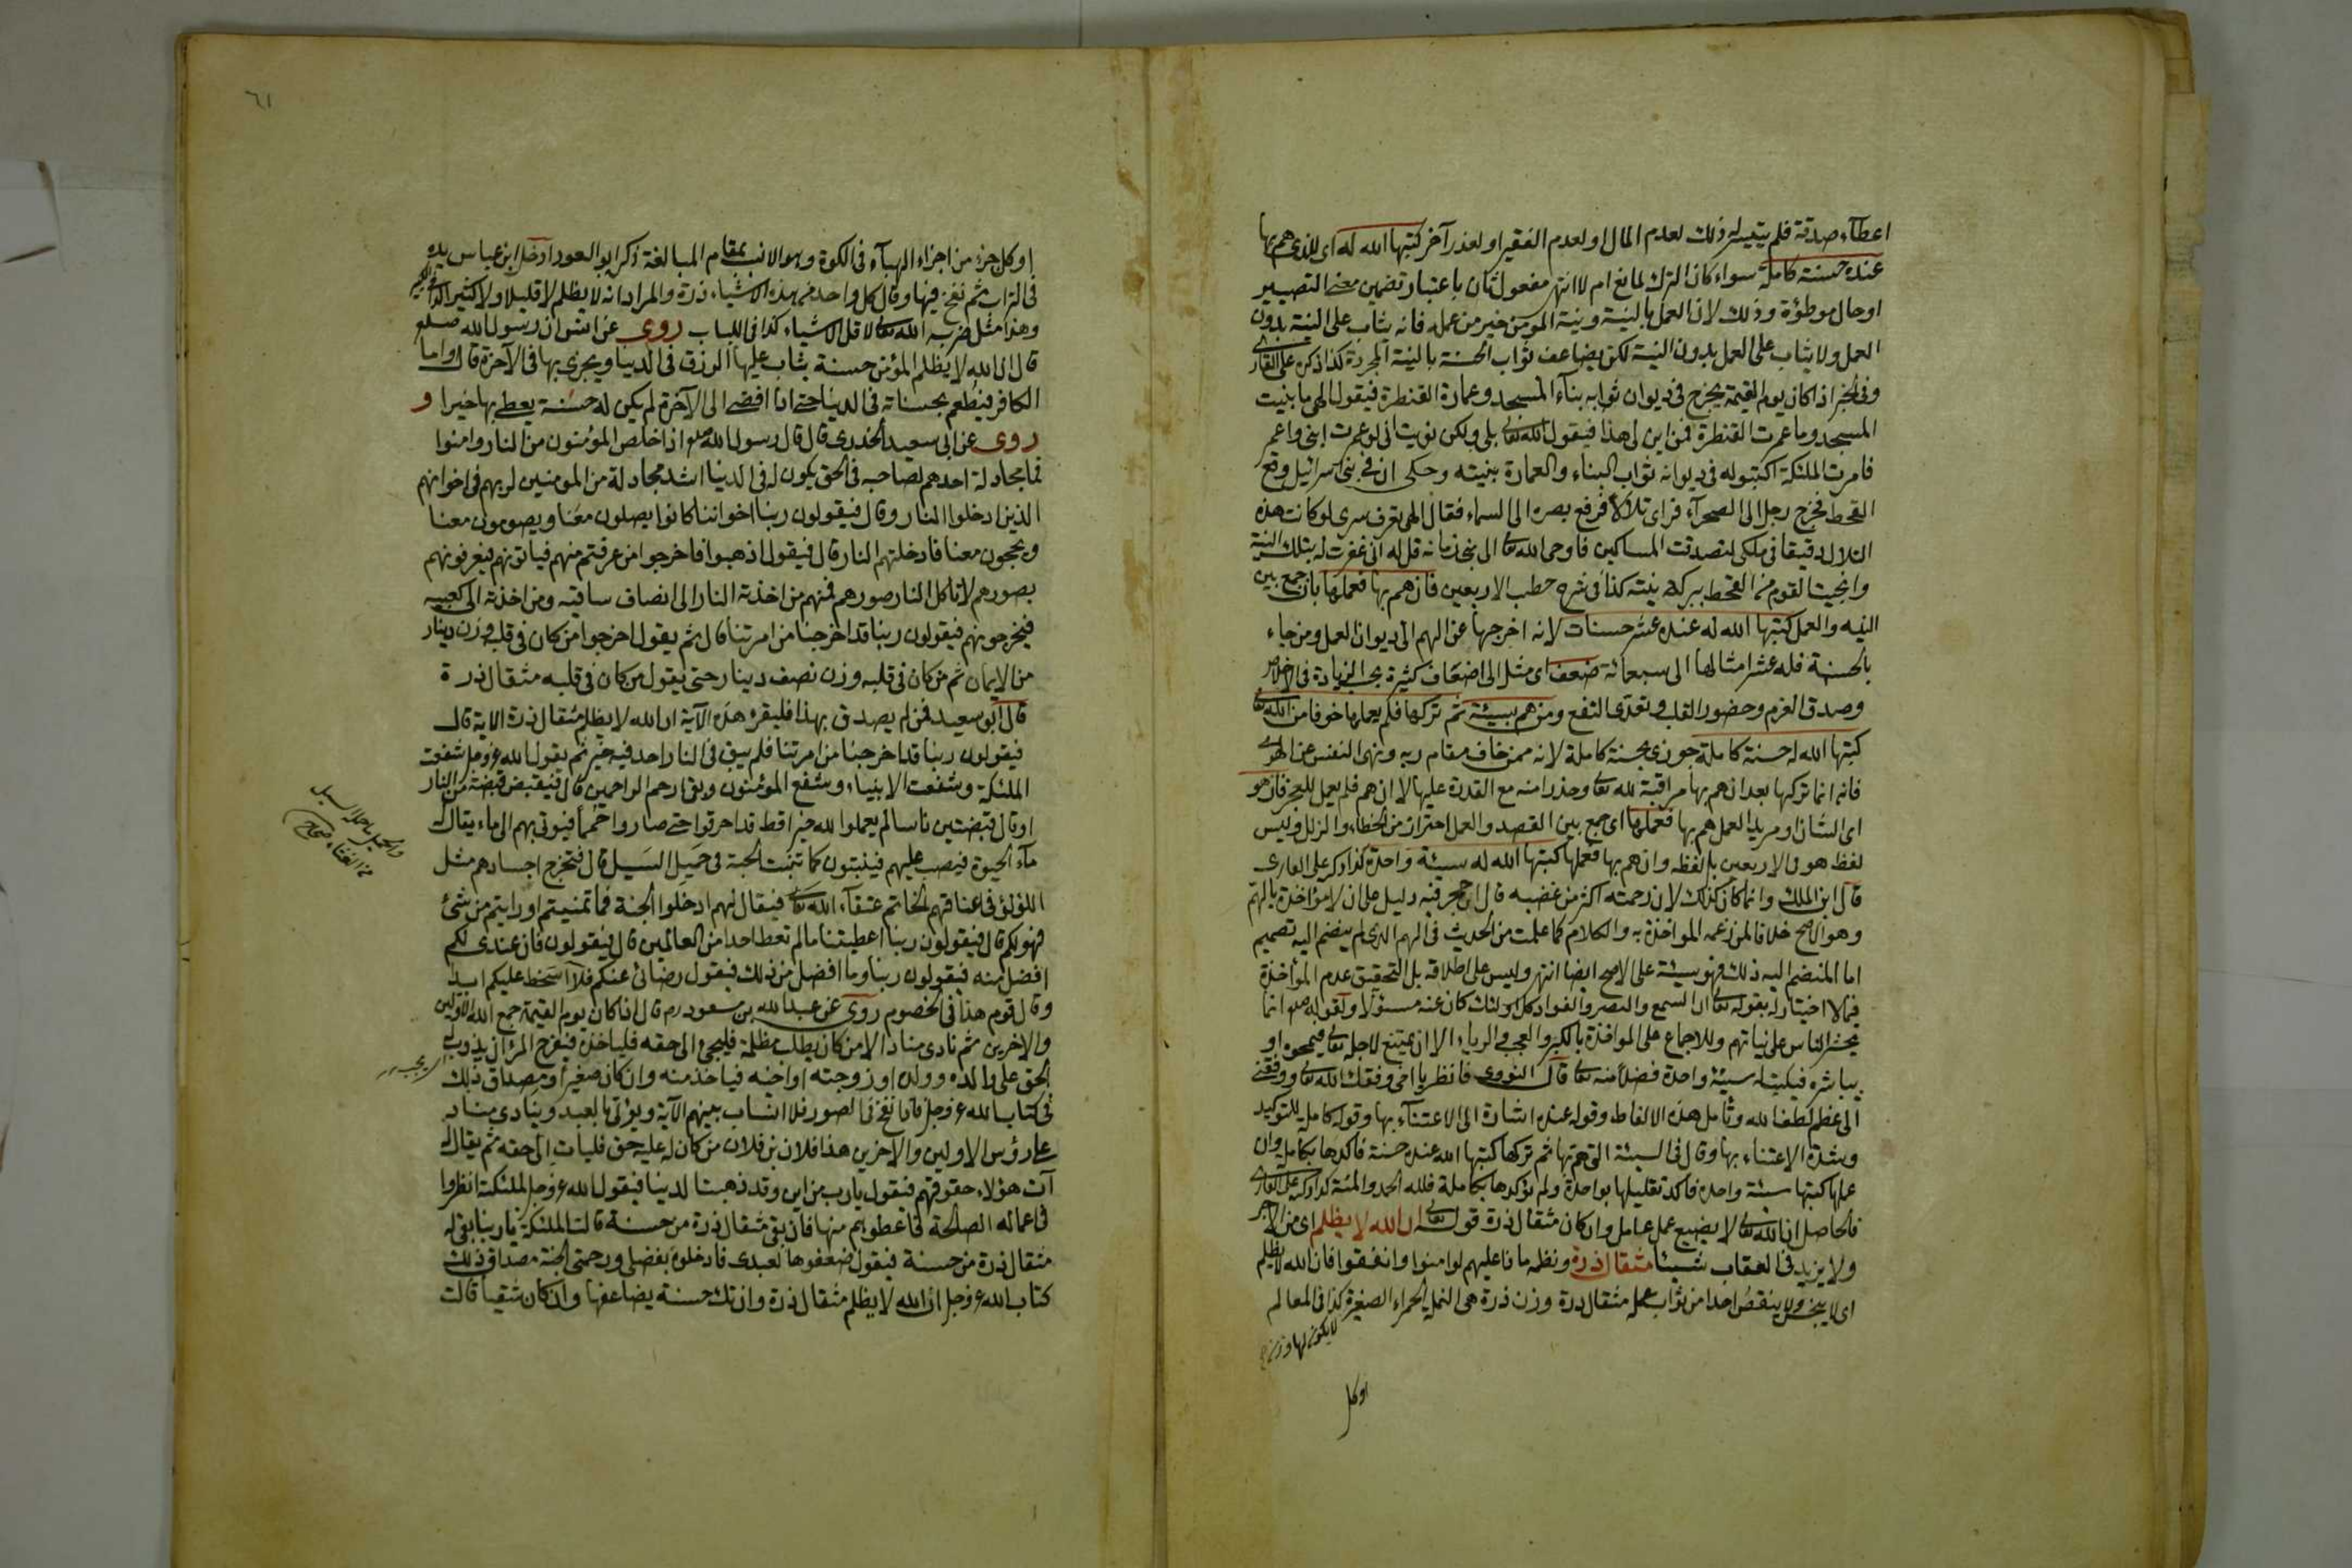 اعطآء صدقة فلم يتيسر له ذلك لعدم المال او لعدم الفقير او لعذر آخر كتبها الله له اى للذى هم بها
عنده حسنة كاملة سواء كان الترك لمانع ام لا انتهى مفعول ثان باعتبار تضمين معنى التصيير
او حال موطؤة وذلك لان العمل بالنية ونية المؤمن خير من عمله فانه يثاب على النية بدون
العمل ولا يثاب على العمل بدون النية لكن يضاعف ثواب الحسنة بالنية المجردة كذا ذكره على القارى
وفى الخبر اذا كان يوم القيمة يخرج فى ديوان ثوابه بناء المسجد وعمارة القنطرة فيقول الهى ما بنيت
المسجد وما عمرت القنطرة فمن اين لى هذا فيقول الله تعالى بلى ولكن نويت انى لو عمرت ابنى واعمر
فامرت الملئكة اكتبوا له فى ديوانه ثواب البناء والعمارة بنيته وحكى ان فى بنى اسرائيل وقع
القحط فخرج رجل الى الصحرآء فراى تلالا فرفع بصره الى السماء فقال الهى تعرف سرى لو كانت هذه
التلال دقيقا فى ملكى لتصدقت المساكين فاوحى الله تعالى الى نبى زمانه قل له انى غفرت له بتلك النية
وانجيت القوم من القحط ببركة نيته كذا فى شرح خطب الاربعين فان هم بها فعملها بان جمع بين
النيه والعمل كتبها الله له عنده عشر حسنات لانه اخرجها عن الهم الى ديوان العمل ومن جاء
بالحسنة فله عشر امثالها الى سبعمائة ضعف اى مثل الى اضعاف كثيرة بحسب الزيادة فى الاخلاص
وصدق العزم وحضور القلب وتعدى النفع ومن هم بسيئة ثم تركها فلم يعملها خوفا من الله تعالى
كتبها الله له حسنة كاملة جوزى بحسنة كاملة لانه ممن خاف مقام ربه ونهى النفس عن الهوى
فانه انما تركها بعد ان هم بها مراقبة لله تعالى وحذرا منه مع القدرة عليها لا ان هم فلم يعمل للعجز فان هو
اى الشان او مريد العمل هم بها فعملها اى جمع بين القصد والعمل احتراز من الخطاء والزلل وليس
لفظ هو فى الاربعين بل لفظه وان هم بها فعملها كتبها الله له سيئة واحدة كذا ذكر على القارى
قال ابن الملك وانما كان كذلك لان رحمته اكثر من غضبه قال ابن حجر فيه دليل على ان لا مؤاخذة بالهم
وهو الاصح خلافا لمن زعم المؤاخذة به والكلام كما علمت من الحديث فى الهم الذى لم ينضم اليه تصميم
اما المنضم اليه ذلك فهو سيئة على الاصح ايضا انتهى وليس على اطلاقه بل التحقيق عدم المؤاخذة
فيما لا اختيار له بقوله تعالى ان السمع والبصر والفواد كل اولئك كان عنه مسئولا ولقوله صلعم انما
يحشر الناس على نياتهم وللاجماع على المواخذة بالكبر والعجب والرياء الا ان يمتنع لاجله تعالى فيمحوه او
يباشره فيكتب له سيئة واحدة فضلا منه تعالى قال النووى فانظر يا اخى وفقك الله تعالى ووفقنى
الى عظم لطف الله وتامل هذه الالفاظ وقوله عنده اشارة الى الاعتناء بها وقوله كاملة للتوكيد
وشدة الاعتناء بها وقال فى السيئة التى هم بها ثم تركها كتبها الله عنده حسنة فاكدها بكاملة وان
عملها كتبها سيئة واحدة فاكد تقليلها بواحدة ولم يؤكدها بكاملة فلله الحمد والمنة كذا ذكر على القارى
فالحاصل ان الله تعالى لا يضيع عمل عامل وان كان مثقال ذرة قوله تعالى ان الله لا يظلم اى من الاجر
ولا يزيد فى العقاب شيئا مثقال ذرة ونظمه ماذا عليهم لو امنوا وانفقوا فان الله لا يظلم
اى لا يبخس ولا ينقص احدا من ثواب عمله مثقال ذرة وزن ذرة هى النملة الحمراء الصغيرة كذا فى المعالم
لا يكون لها وزن
او كل
٦١
او كل جزء من اجزاء الهباء فى الكوة وهو الانسب بمقام المبالغة ذكر ابو السعود ادخل ابن عباس يده
فى التراب ثم نفخ فيها وقال كل واحد من هذه الاشياء ذرة والمراد انه لا يظلم لا قليلا ولا كثيرا
وهذا مثل ضربه الله تعالى لاقل الاشياء كذا فى اللباب روى عن انس ان رسول الله صلعم
قال ان الله لا يظلم المؤمن حسنة يثاب عليها الرزق فى الدنيا ويجزى بها فى الآخرة قال واما
الكافر فيطعم بحسناته فى الدنيا حتى اذا افضى الى الآخرة لم يكن له حسنة يعطى بها خيرا و
روى عن ابى سعيد الخدرى قال قال رسول الله صلعم اذا خلص المؤمنون من النار وامنوا
فما مجادلة احدهم لصاحبه فى الحق يكون له فى الدنيا اشد مجادلة من المؤمنين لربهم فى اخوانهم
الذين ادخلوا النار وقال فيقولون ربنا اخواننا كانوا يصلون معنا ويصومون معنا
ويحجون معنا فادخلتهم النار قال فيقول اذهبوا فاخرجوا من عرفتم منهم فياتونهم فيعرفونهم
بصورهم لا تاكل النار صورهم فمنهم من اخذته النار الى انصاف ساقيه ومن اخذته الى كعبيه
فيخرجونهم فيقولون ربنا قد اخرجنا من امرتنا قال ثم يقول اخرجوا من كان فى قلبه وزن دينار
من الايمان ثم من كان فى قلبه وزن نصف دينار حتى يقول من كان فى قلبه مثقال ذرة
قال ابو سعيد فمن لم يصدق بهذا فليقرء هذه الآية ان الله لا يظلم مثقال ذرة الاية قال
فيقولون ربنا قد اخرجنا من امرتنا فلم يبق فى النار احد فيه خير ثم يقول الله عز وجل شفعت
الملئكة وشفعت الانبياء وشفع المؤمنون وبقى ارحم الراحمين قال فيقبض قبضة من النار
او قال قبضتين ناسا لم يعملوا لله خيرا قط قد احرقوا حتى صاروا حُمَماً فيوتى بهم الى ماء يقال له
مآء الحيوة فيصب عليهم فينبتون كما تنبت الحبة فى حميل السيل قال فتخرج اجسادهم مثل
اللؤلؤ فى اعناقهم الخاتم عتقآء الله تعالى فيقال لهم ادخلوا الجنة فما تمنيتم او رايتم من شئ
فهو لكم قال فيقولون ربنا اعطيتنا ما لم تعط احدا من العالمين قال فيقولون فان عندى لكم
افضل منه فيقولون ربنا وما افضل من ذلك فيقول رضائى عنكم فلا اسخط عليكم ابدا
وقال قوم هذا فى الخصوم روى عن عبد الله بن مسعود رم قال اذا كان يوم القيمة جمع الله الاولين
والاخرين ثم نادى مناد الا من كان يطلب مظلمة فليجئ الى حقه فلياخذه فيفرح المرء ان يذوب له
الحق على والده وولده او زوجته او اخيه فياخذ منه وان كان صغيرا ومصداق ذلك
فى كتاب الله عز وجل فاذا نفخ فى الصور فلا انساب بينهم الآية ويؤتى بالعبد وينادى مناد
على رؤس الاولين والآخرين هذا فلان بن فلان من كان له عليه حق فليات الى حقه ثم يقال له
آت هؤلاء حقوقهم فيقول يا رب من اين وقد ذهبت الدنيا فيقول الله عز وجل لملئكته انظروا
فى اعماله الصالحة فاعطوهم منها فان بقى مثقال ذرة من حسنة قالت الملئكة يا ربنا بقى له
مثقال ذرة من حسنة فيقول ضعفوها لعبدى فادخلوه بفضل ورحمتى الجنة مصداق ذلك
كتاب الله عز وجل ان الله لا يظلم مثقال ذرة وان تك حسنة يضاعفها وان كان شقيا قالت
والحميل ما حمله السيل
من الغثاء صحاح